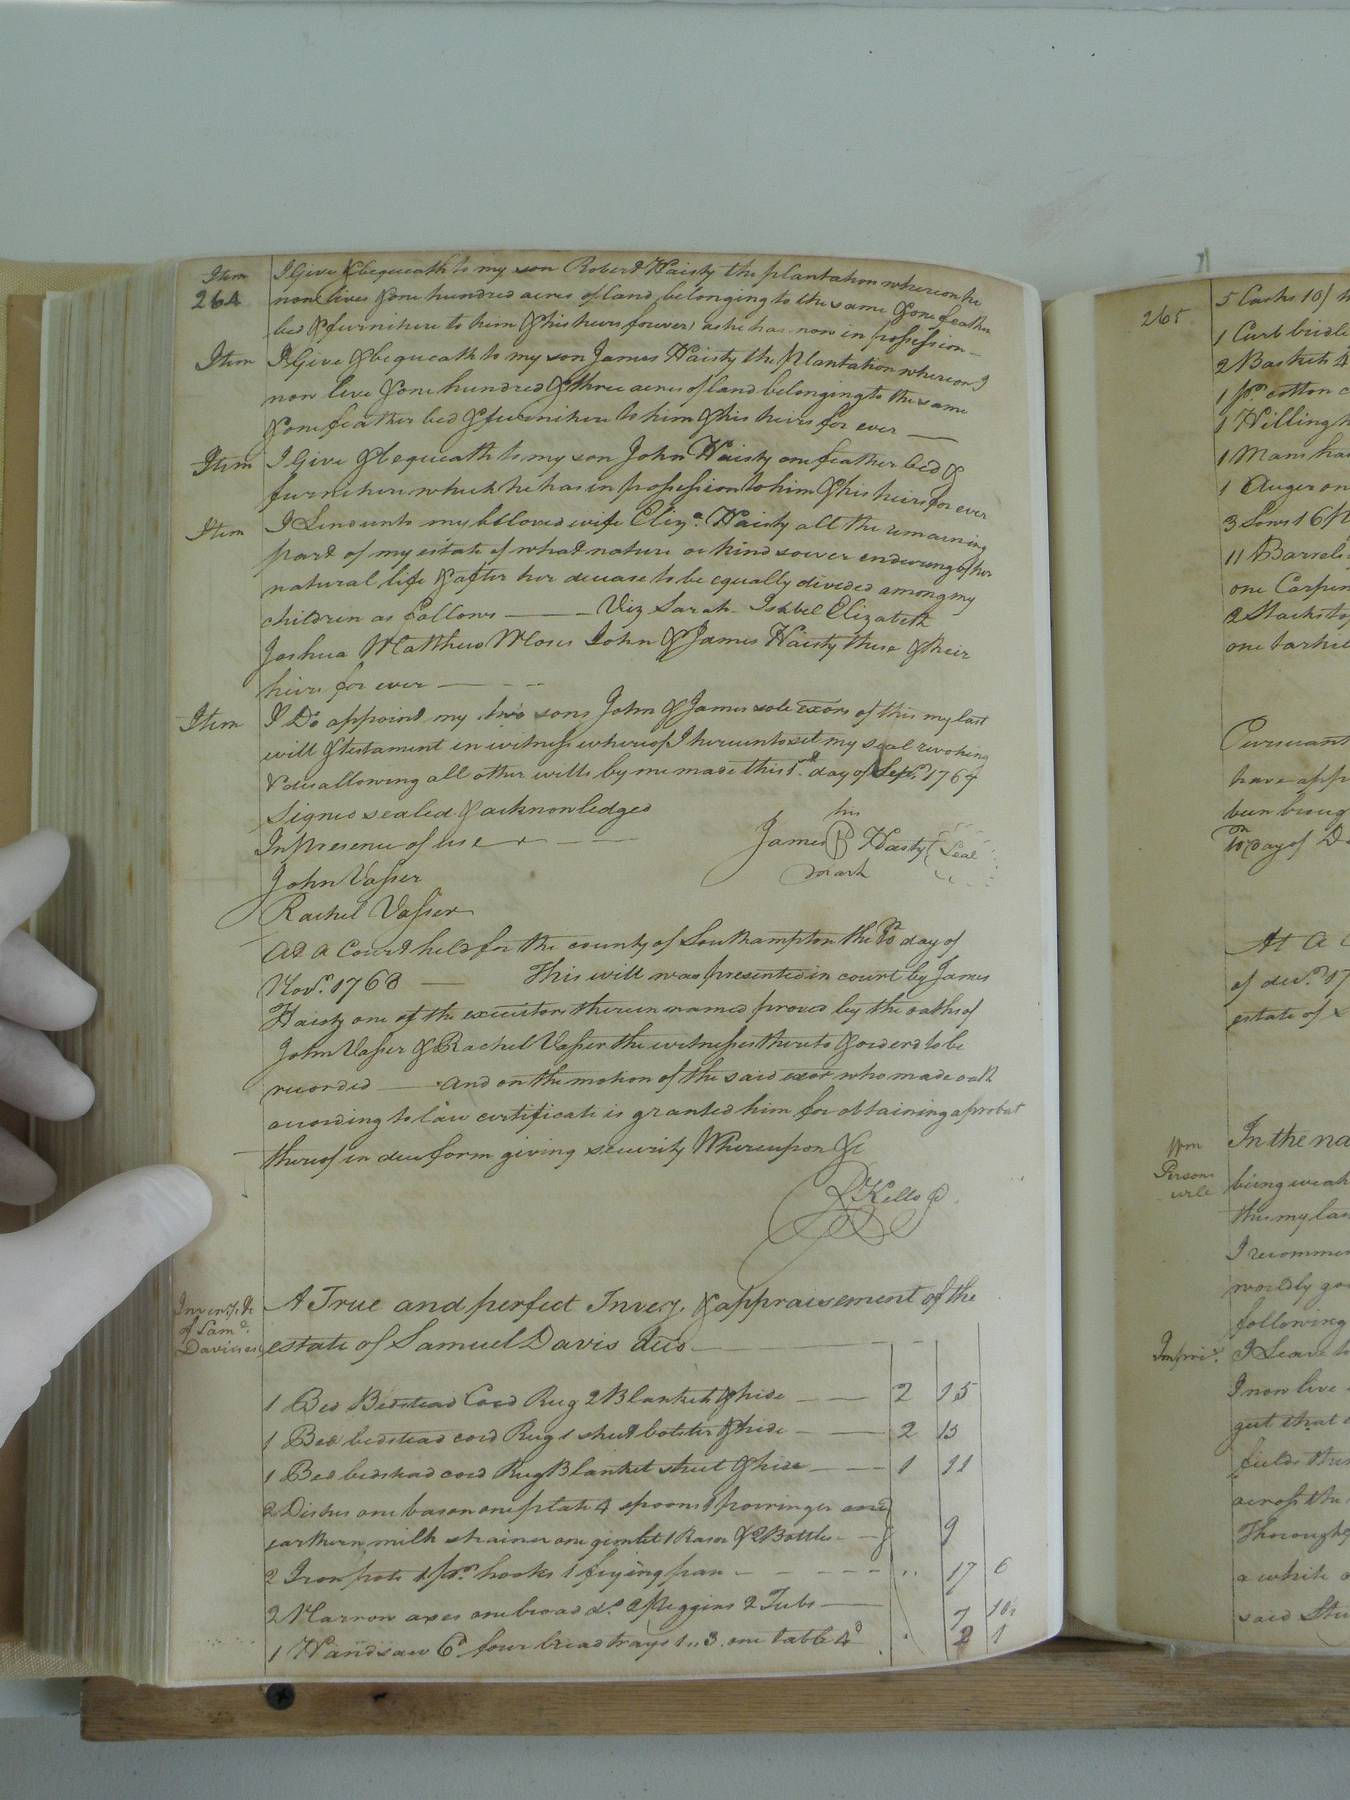 Item I Give & bequeath to my son Robert Haisty the plantation whereon he
264 now lives & one hundred acres of land belonging to the same & one feather
bed & furniture to him & his heirs forever as he has now in possession
Item I Give & bequeath to my son James Haisty the plantation whereon I
now live & one hundred & three acres of land belonging to the same
& one feather bed & furniture to him & his heirs for ever
Item I Give & bequeath to my son John Haisty one feather bed &
furniture which he has in possession to him & his heirs for ever
Item I Lend unto my beloved wife Eliza. Haisty all the remaining
part of my estate of what nature or kind soever endureing of her
natural life & after her decease to be equally divided among my
children as follows Viz Sarah Isabel Elizabeth
Joshua Matthew Moses John & James Haisty these & their
heirs for ever
Item I Do appoint my two sons John & James sole exors of this my last
will & testament in witness whereof I hereunto set my seal revoking
& disallowing all other wills by me made this 1st day of Sept. 1764
Signed sealed & acknowledged
In presence of us
his
James B Hasty Seal
mark
John Vasser
Rachel Vasser
At a Court held for the county of Southampton the 10th day of
Nov. 1768 This will was presented in court by James
Haisty one of the executors therein named proved by the oaths of
John Vasser & Rachel Vasser the witnesses thereto & orderd to be
recorded And on the motion of the said exor who made oath
according to law certificate is granted him for obtaining a probat
thereof in due form giving security Whereupon &c
R Kello
Inveny. &c
of Samd.
Davis
A True and perfect Inveny. & appraisement of the
estate of Samuel Davis decd
1 Bed Bedstead Cord Rug 2 Blankets & hide 2 15
1 Bed bedstead cord Rug 1 sheet bolster & hide 2 15
1 Bed bedstead cord Rug Blanket sheet & hide 1 11
2 Dishes one bason one plate 4 spoons 1 porringer and
earthern milk strainer one gimlet 1 Rasor & 2 Bottles 9
2 Iron pots 1 pr. hooks 1 frying pan 17 6
2 Narrow axes one broad do. 2 piggins 2 Tubs 7 10
1 Handsaw 6d four bread trays 1..3 one table 4d 2 1
265
5 Casks 10/
1 Curb bridle
2 Baskets 4
1 pr. cotton c
1 Hilling h
1 Mans ha
1 Auger on
3 Sows 16 p
11 Barrels
one Carpen
2 Stacks
one
Pursuant
have app
been broug
10th day of D
At a C
of decr. 17
estate of S
Wm
Persons
will
In the na
being weak
this my las
I recomme
worldly go
following
Impris. I Leave to
I now live
get that
fields
across the
Thorough
a white
said